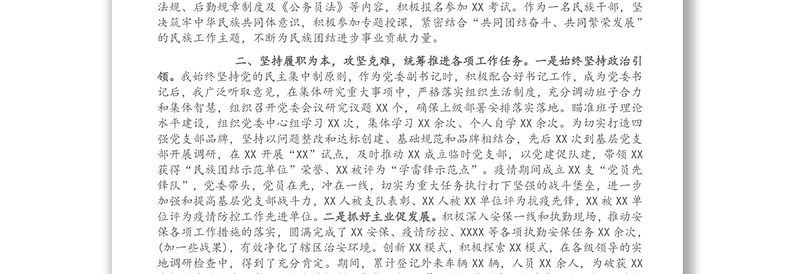 法规、后勤规章制度及《公务员法》等内容，积极报名参加 XX 考试。作为一名民族干部，坚
决筑牢中华民族共同体意识，积极参加专题授课，紧密结合“共同团结奋斗、共同繁荣发展”
的民族工作主题，不断为民族团结进步事业贡献力量。
二、坚持履职为本，攻坚克难，统筹推进各项工作任务。一是始终坚持政治引
领。我始终坚持党的民主集中制原则，作为党委副书记时，积极配合好书记工作，成为党委书
记后，我广泛听取意见，在集体研究重大事项中，严格落实组织生活制度，充分调动班子合力
和集体智慧，组织召开党委会议研究议题 XX 个，确保上级部署安排落实落地。瞄准班子理论
水平建设，组织党委中心组学习 XX 次，集体学习 XX 余次、个人自学 XX 余次。为切实打造四
强党支部品牌，坚持以问题整改和达标创建、基础规范和品牌相结合，先后 XX 次到基层党支
部开展调研，在 XX 开展“XX”试点，及时推动 XX 成立临时党支部，以党建促队建，带领 XX
获得“民族团结示范单位”荣誉、XX 被评为“学雷锋示范点”。疫情期间成立 XX 支“党员先
锋队”，党委带头，党员在先，冲在一线，切实为重大任务执行打下坚强的战斗堡垒，进一步
加强和提高基层党支部战斗力，XX 人被支队表彰、XX 人被 XX 单位评为抗疫先锋，XX 被 XX 单
位评为疫情防控工作先进单位。二是抓好主业促发展。积极深入安保一线和执勤现场，推动安
保各项工作措施的落实，圆满完成了 XX 安保、疫情防控、XXXX 等各项执勤安保任务 XX 余次，
(加一些战果)，有效净化了辖区治安环境。创新 XX 模式，积极探索 XX 模式，在各级领导的实
地调研检查中，得到了充分肯定。期间，累计登记外来车辆 XX 辆，人员 XX 余人，为破获 XX